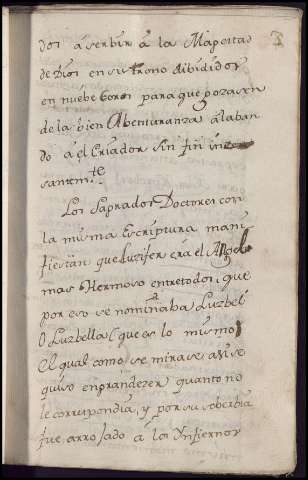 3
dos á serbir á la Magestad
de Dios en su trono dibididos
en nuebe Coros para que gozasen
de la bien Abenturanza alaban
do á el Criador sin fin ince
santem.te
Los Sagrados Doctores con
la misma Escriptura mani
fiestan que Luzifer era el Angel
mas Hermoso entre todos, que
por eso se nominaba Luzbel
O Luzbella (que es lo mismo)
el qual como se mirase asi se
quiso engrandezer quanto no
le correspondia, y por su soberbia
fue arrojado á los Ynfiernos